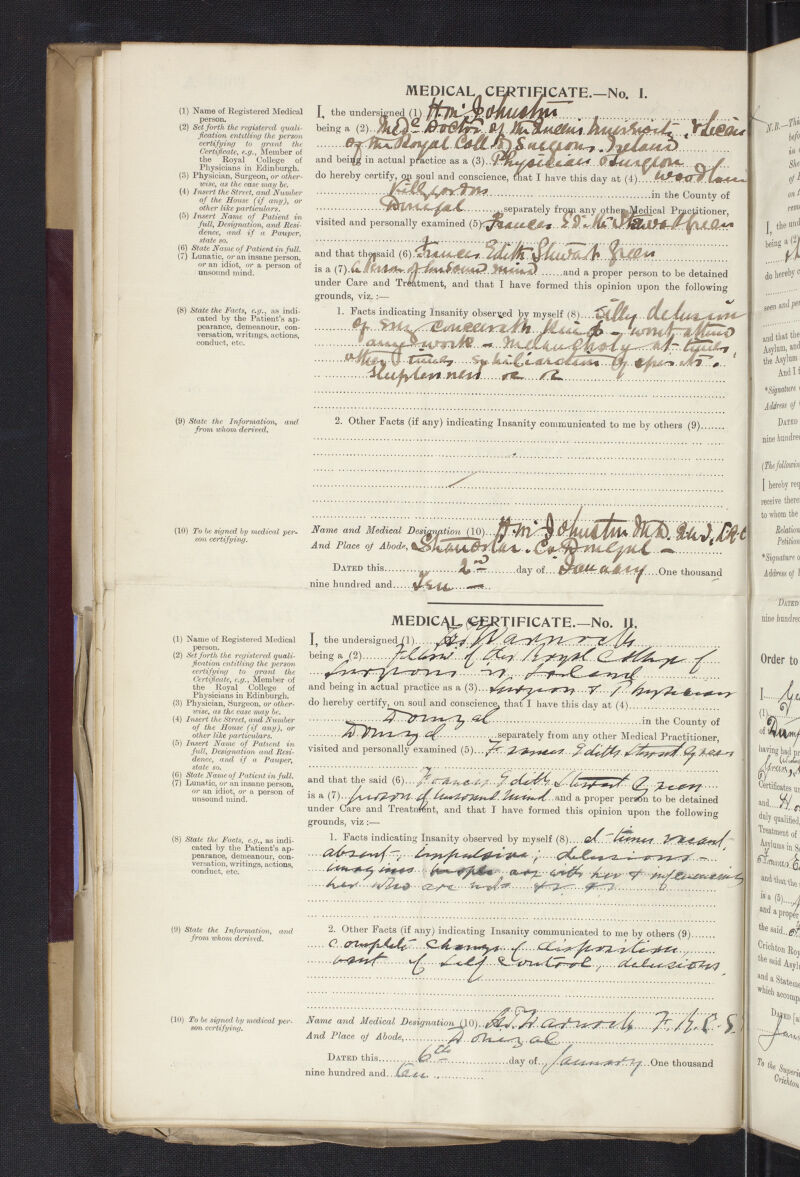 MEDICAL CERTIFICATE.—No. I.
(1) Name of Registered Medical person.
(2) Set forth the registered quali-
fication entitling the person
certifying to grant the
Certificate, e.g., Member of
the Royal College of
Physicians in Edinburgh.
(3) Physician, Surgeon, or other-
wise, as the case may be.
(4) Insert the Street, and Number
of the House (if any), or
other like particulars.
(5) Insert Name of Patient in
full, Designation, and Resi-
dence, and if a Pauper,
state so.
(6) State Name of Patient in full.
(7) Lunatic, or an insane person,
or an idiot, or a person of
unsound mind.
(8) State the Facts, e.g., as indi-
cated by the Patient's ap-
pearance, demeanour, con-
versation, writings, actions,
conduct, etc.
(9) State the Information, and
from whom derived.
(10) To be signed by medical per-
son certifying.
I, the undersigned (1) Hm Johnston
being a (2) Med. Doctor of the Queens University &
of the Royal Coll of Surgeons. Ireland
and being in actual practice as a (3) Physician & Surgeon
do hereby certify, on soul and conscience, that I have this day at (4) Woodlawn
Killygordon in the County of
Donegal separately from any other Medical Practitioner,
visited and personally examined (5) Frances Green
and that the said (6) Frances Edith Stewart Green
is a (7) a Person of unsound mind and a proper person to be detained
under Care and Treatment, and that I have formed this opinion upon the following
grounds, viz.:—
1. Facts indicating Insanity observed by myself (8) Silly delusion
of wont attend
any work - melancholy at times,
other times of spirits.
Sleeplessness
2. Other Facts (if any) indicating Insanity communicated to me by others (9)
Name and Medical Designation (10) Hm Johnston M.D.
And Place of Abode, Stranorlar. Co Donegal —
DATED this 2nd day of January One thousand
nine hundred and Ten —
MEDICAL CERTIFICATE.—No. II.
(1) Name of Registered Medical
person.
(2) Set forth the registered quali-
fication entitling the person
certifying to grant the
Certificate, e.g., Member of
the Royal College of
Physicians in Edinburgh.
(3) Physician, Surgeon, or other-
wise, as the case may be.
(4) Insert the Street, and Number
of the House (if any), or
other like particulars.
(5) Insert Name of Patient in
full, Designation, and Resi-
dence, and if a Pauper,
state so.
(6) State Name of Patient in full.
(7) Lunatic, or an insane person,
or an idiot, or a person of
unsound mind.
(8) State the Facts, e.g., as indi-
cated by the Patient's ap-
pearance, demeanour, con-
versation, writings, actions,
conduct, etc.
(9) State the Information, and
from whom derived.
(10) To be signed by medical per-
son certifying.
I, the undersigned (1) Warnock
being a (2) Fellow of the Royal College of
Surgeons in Ireland
and being in actual practice as a (3) Surgeon & Physician
do hereby certify, on soul and conscience, that I have this day at (4)
Donegal in the County of
Donegal separately from any other Medical Practitioner,
visited and personally examined (5) Frances Edith Stewart Green
and that the said (6) Frances Edith Stewart Green
is a (7) person of unsound mind and a proper person to be detained
under Care and Treatment, and that I have formed this opinion upon the following
grounds, viz :—
1. Facts indicating Insanity observed by myself (8) at times vacant,
absent, impulsive; delusions -
imagines people are with her & influencing
her who are not
2. Other Facts (if any) indicating Insanity communicated to me by others (9)
complete change of disposition,
want of self control, delusions.
Name and Medical Designation (10) Warnock F.R.C.S.
And Place of Abode, Donegal
DATED this 6th day of January One thousand
nine hundred and ten
N.B.—This
I, the und
being a (2)
do hereby
seen and per
and that the
Asylum, and
the Asylum
And I
*Signature
Address of
DATED
nine hundred
(The following
I hereby req
receive there
to whom the
Relation
Petition
*Signature o
Address of
DATED
nine hundred
Order to
I
(1)
of Dumf
having had pr
Certificates un
and
duly qualified,
Treatment of
Asylums in S
and that the
is a (5)
and a proper
the said
Crichton Roy
the said Asyl
and a Stateme
which accomp
DATED
To the Superi
Crichton